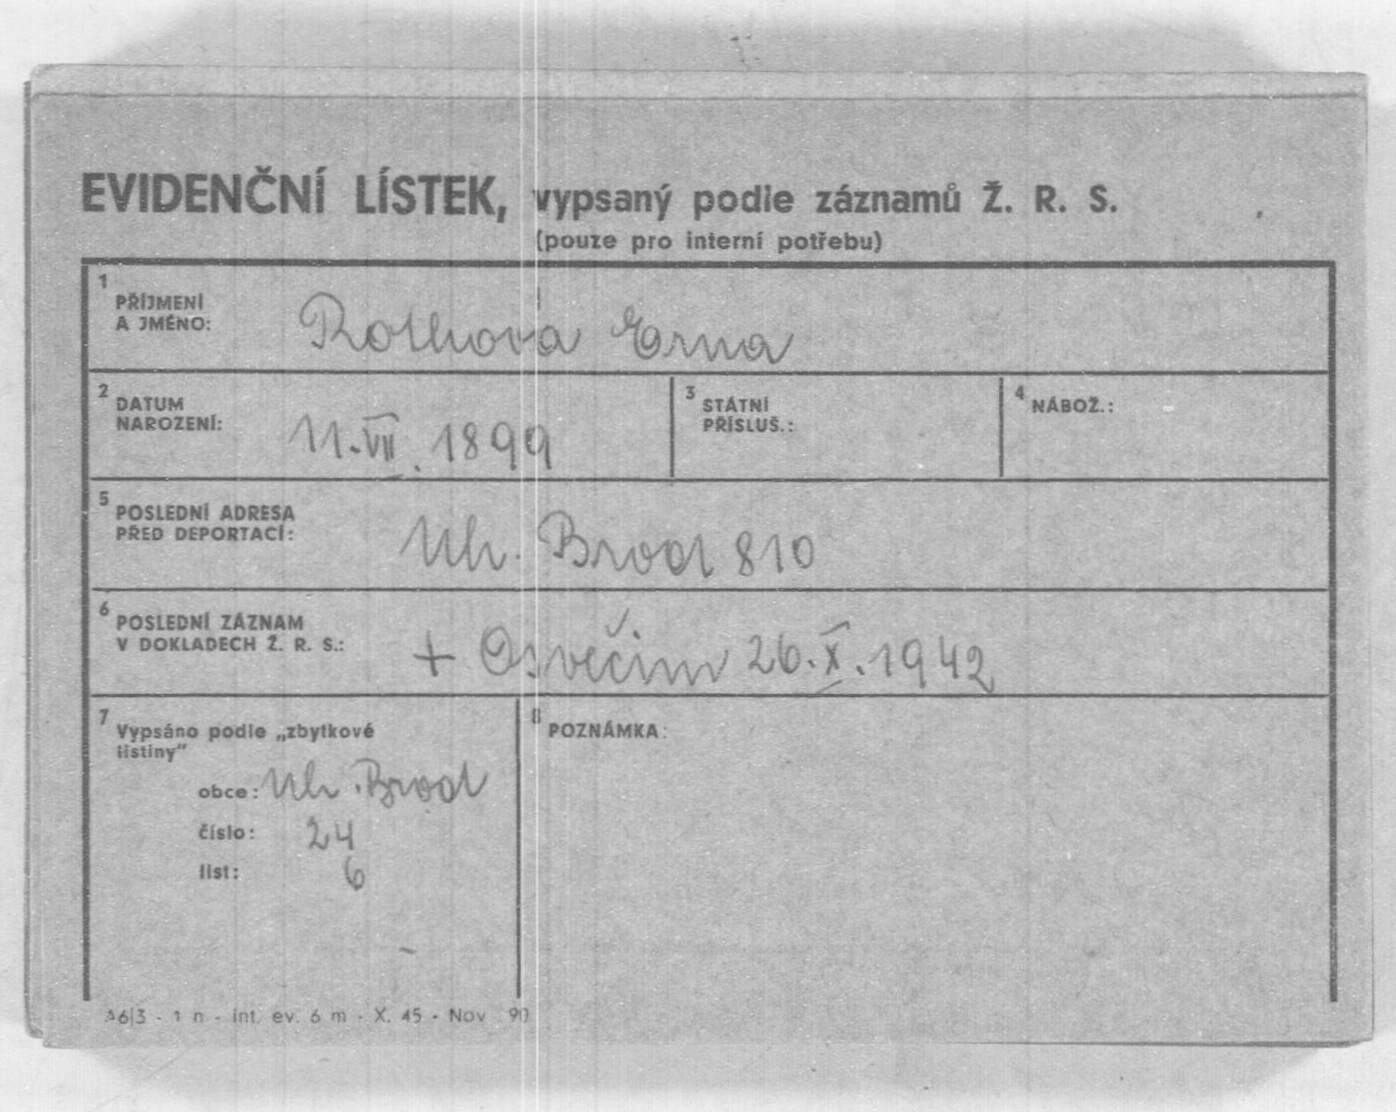 EVIDENČNÍ LÍSTEK, vypsaný podle záznamů Ž. R. S.
(pouze pro interní potřebu)
1 PŘÍJMENÍ
A JMÉNO: Rothova Erna
2 DATUM
NAROZENÍ: 11. VII. 1899
3 STÁTNÍ
PŘÍSLUŠ.:
4 NÁBOŽ.:
5 POSLEDNÍ ADRESA
PŘED DEPORTACÍ: Uh. Brod 810
6 POSLEDNÍ ZÁZNAM
V DOKLADECH Ž. R. S.: + Osvěčim 26. X. 1942
7 Vypsáno podle „zbytkové
listiny"
obce: Uh. Brod
číslo: 24
list: 6
8 POZNÁMKA:
A6|3 - 1 n - int. ev. 6 m - X. 45 - Nov 90